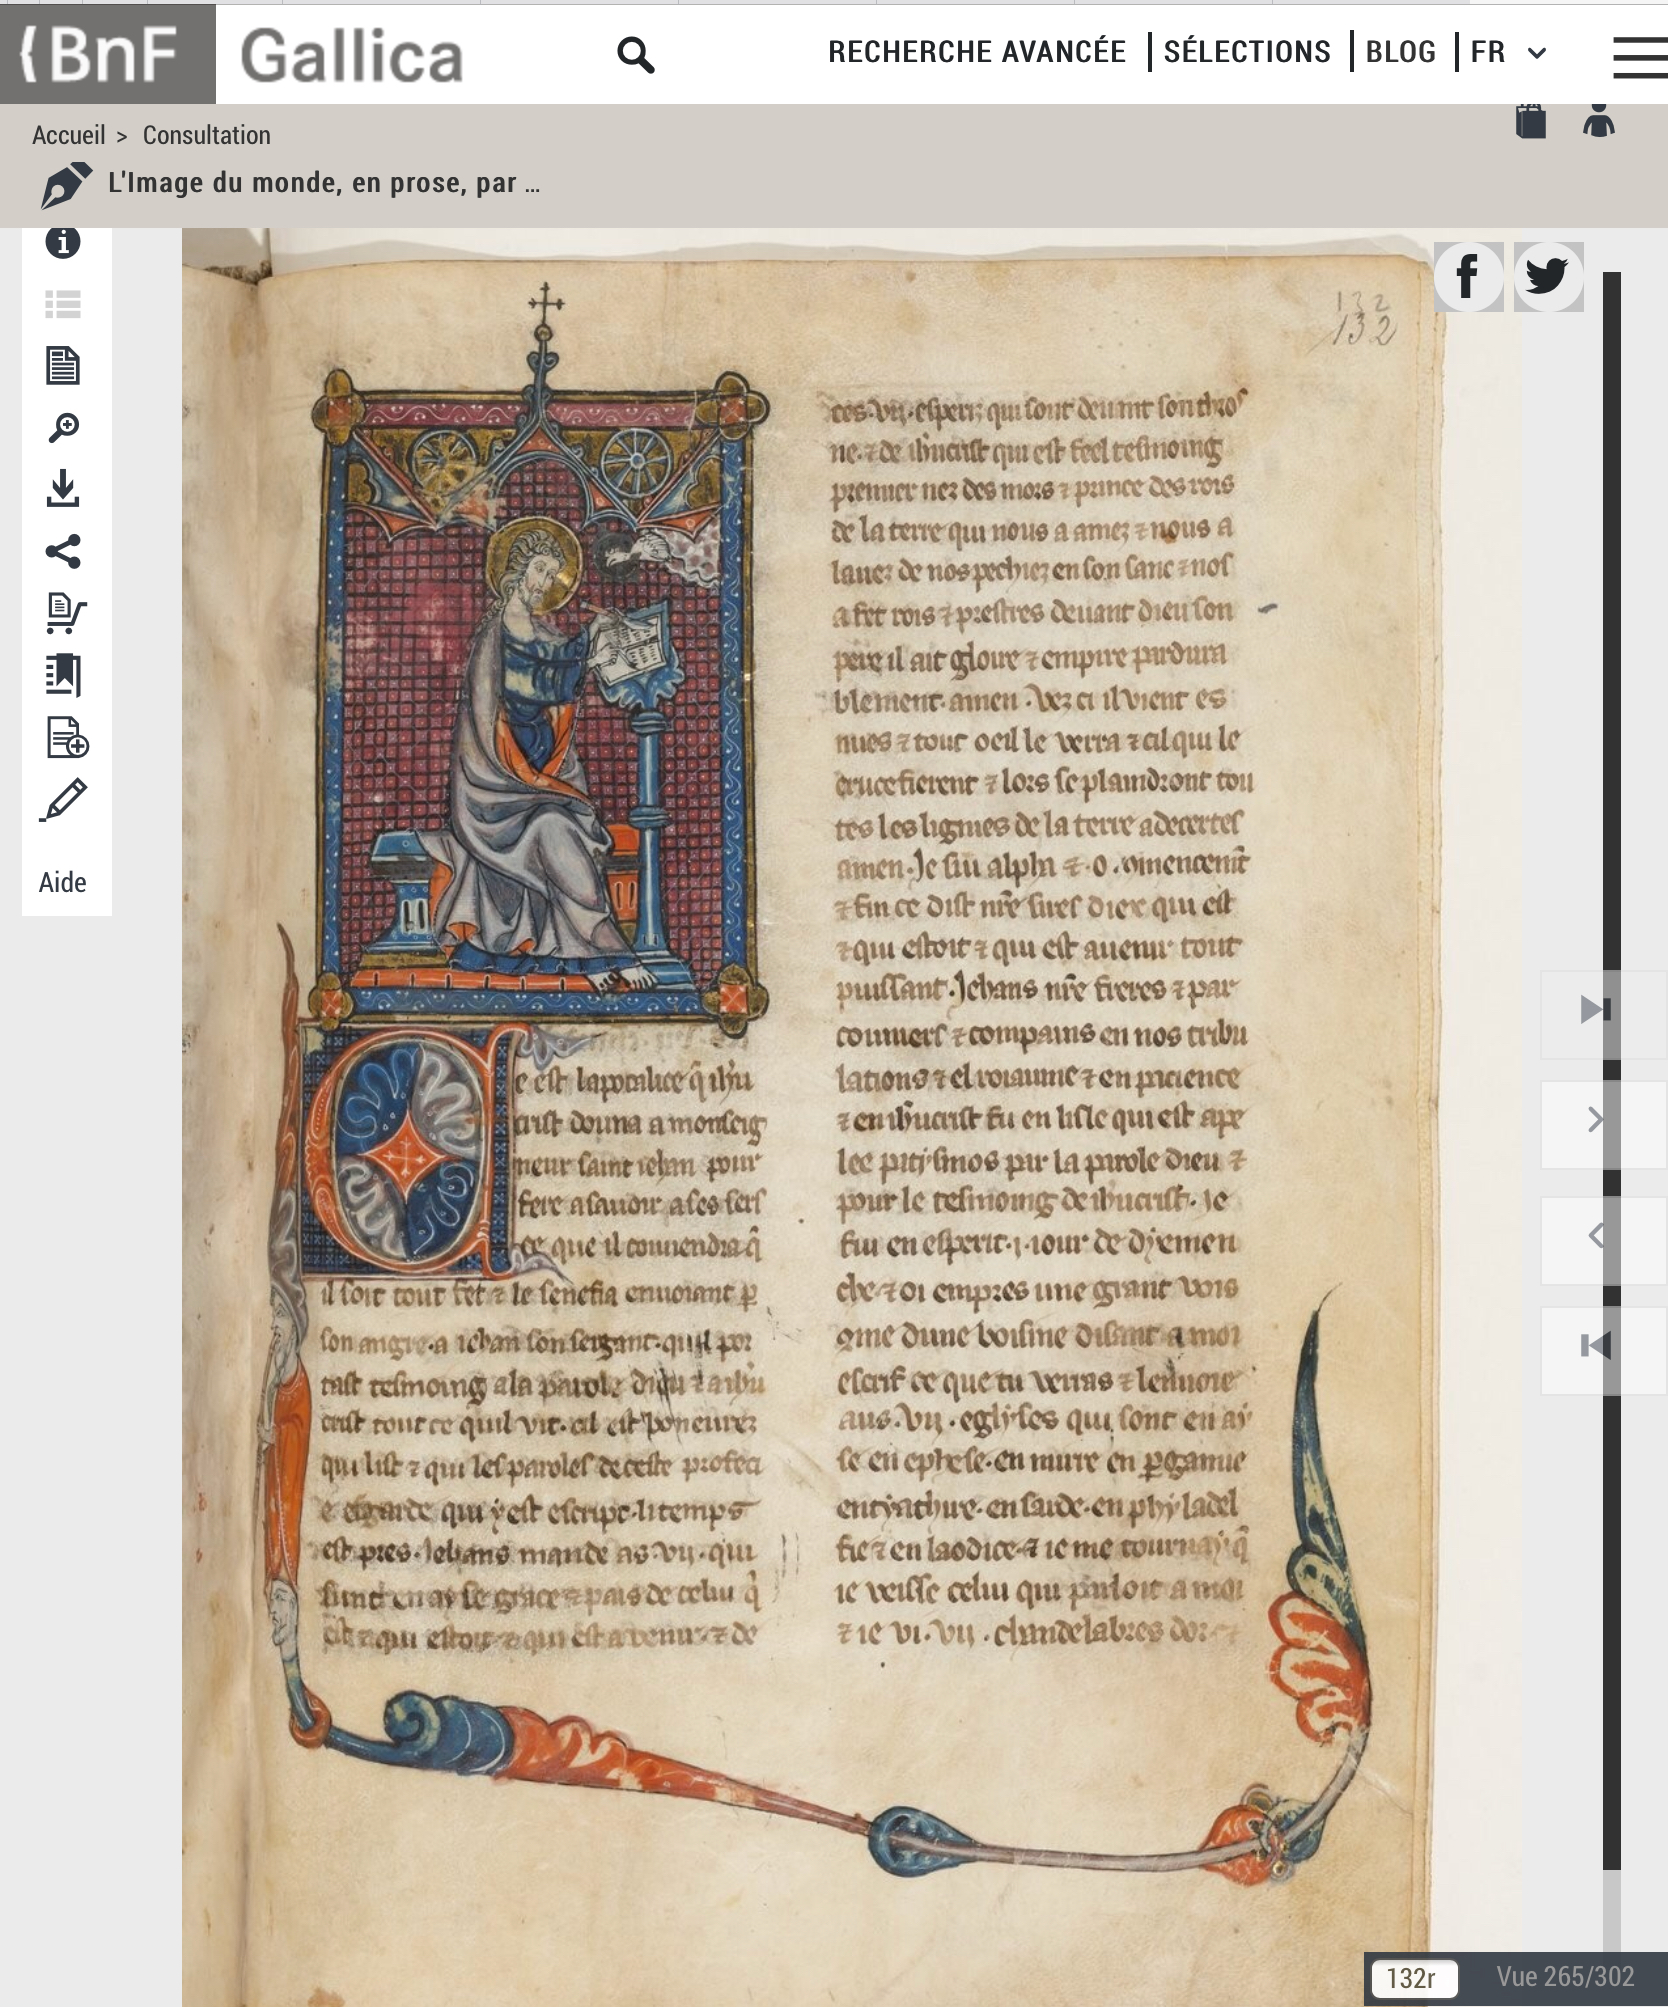 BnF
Gallica
RECHERCHE AVANCÉE | SÉLECTIONS | BLOG | FR
Accueil > Consultation
L'Image du monde, en prose, par ...
Aide
132
132
e est lapocalice q̃ ihũ
crist douna a monseig
neur saint iehan pour
fere a sauoir a ses sers
ce que il couuendra q̃
il soit tout fet ⁊ le senefia enuoiant p
son angre a iehan son sergant quil por
tast tesmoing a la parole dieu ⁊ a ihũ
crist tout ce quil vit cil est boneurez
qui list ⁊ qui les paroles de ceste profeci
e esgarde qui y est escript li temps
est pres Iehans mande as vij qui
sunt en ayse grace ⁊ pais de celui q̃
est ⁊ qui estoit ⁊ qui est a venir ⁊ de
ces vij esperiz qui sont deuant son thro
ne ⁊ de ihũcrist qui est feel tesmoing
premier nez des mors ⁊ prince des rois
de la terre qui nous a amez ⁊ nous a
lauez de nos pechiez en son sanc ⁊ nos
a fet rois ⁊ prestres deuant dieu son
pere il ait gloire ⁊ empire pardura
blement amen Vez ci il vient es
nues ⁊ tout oeil le verra ⁊ cil qui le
crucefierent ⁊ lors se plaindront tou
tes les lignies de la terre adecertes
amen Je sui alpha ⁊ o
⁊ fin ce dist nr̃e sires diex qui est
⁊ qui estoit ⁊ qui est auenir tout
puissant Jehans nr̃e freres ⁊ par
conniers ⁊ compains en nos tribu
lations ⁊ el roiaume ⁊ en pacience
⁊ en ihũcrist fu en lisle qui est ape
lee pathsmos par la parole dieu ⁊
pour le tesmoing de ihũcrist Je
fui en esperit j iour de dyemen
che ⁊ oi empres une grant vois
9me dune boisine disant a moi
escrif ce que tu verras ⁊ lenuoie
aus vij eglyses qui sont en ay
se en ephese en mirre en pgame
en tyathire en sarde en phyladel
fie ⁊ en laodice ⁊ ie me tournay q̃
ie veisse celui qui parloit a moi
⁊ ie vi vij chandelabres dor
132r
Vue 265/302